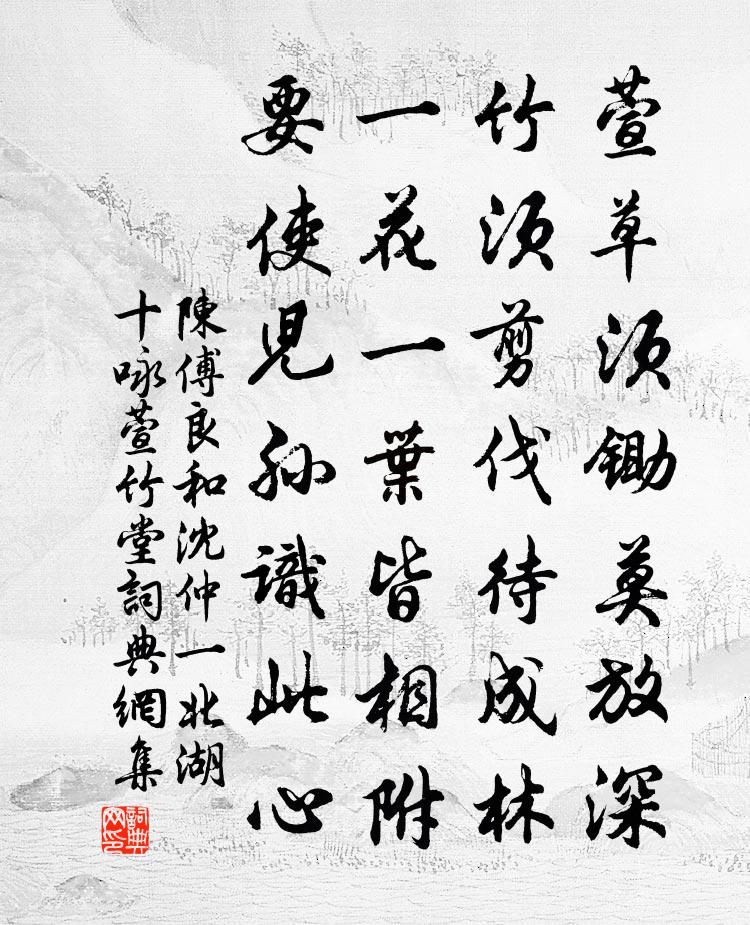 萱草須鋤莫放深
竹須剪伐待成林
一花一葉皆相附
要使兒孫識此心
陳傅良和沈仲一北湖
十咏萱竹堂詞典網集
詞典
网印